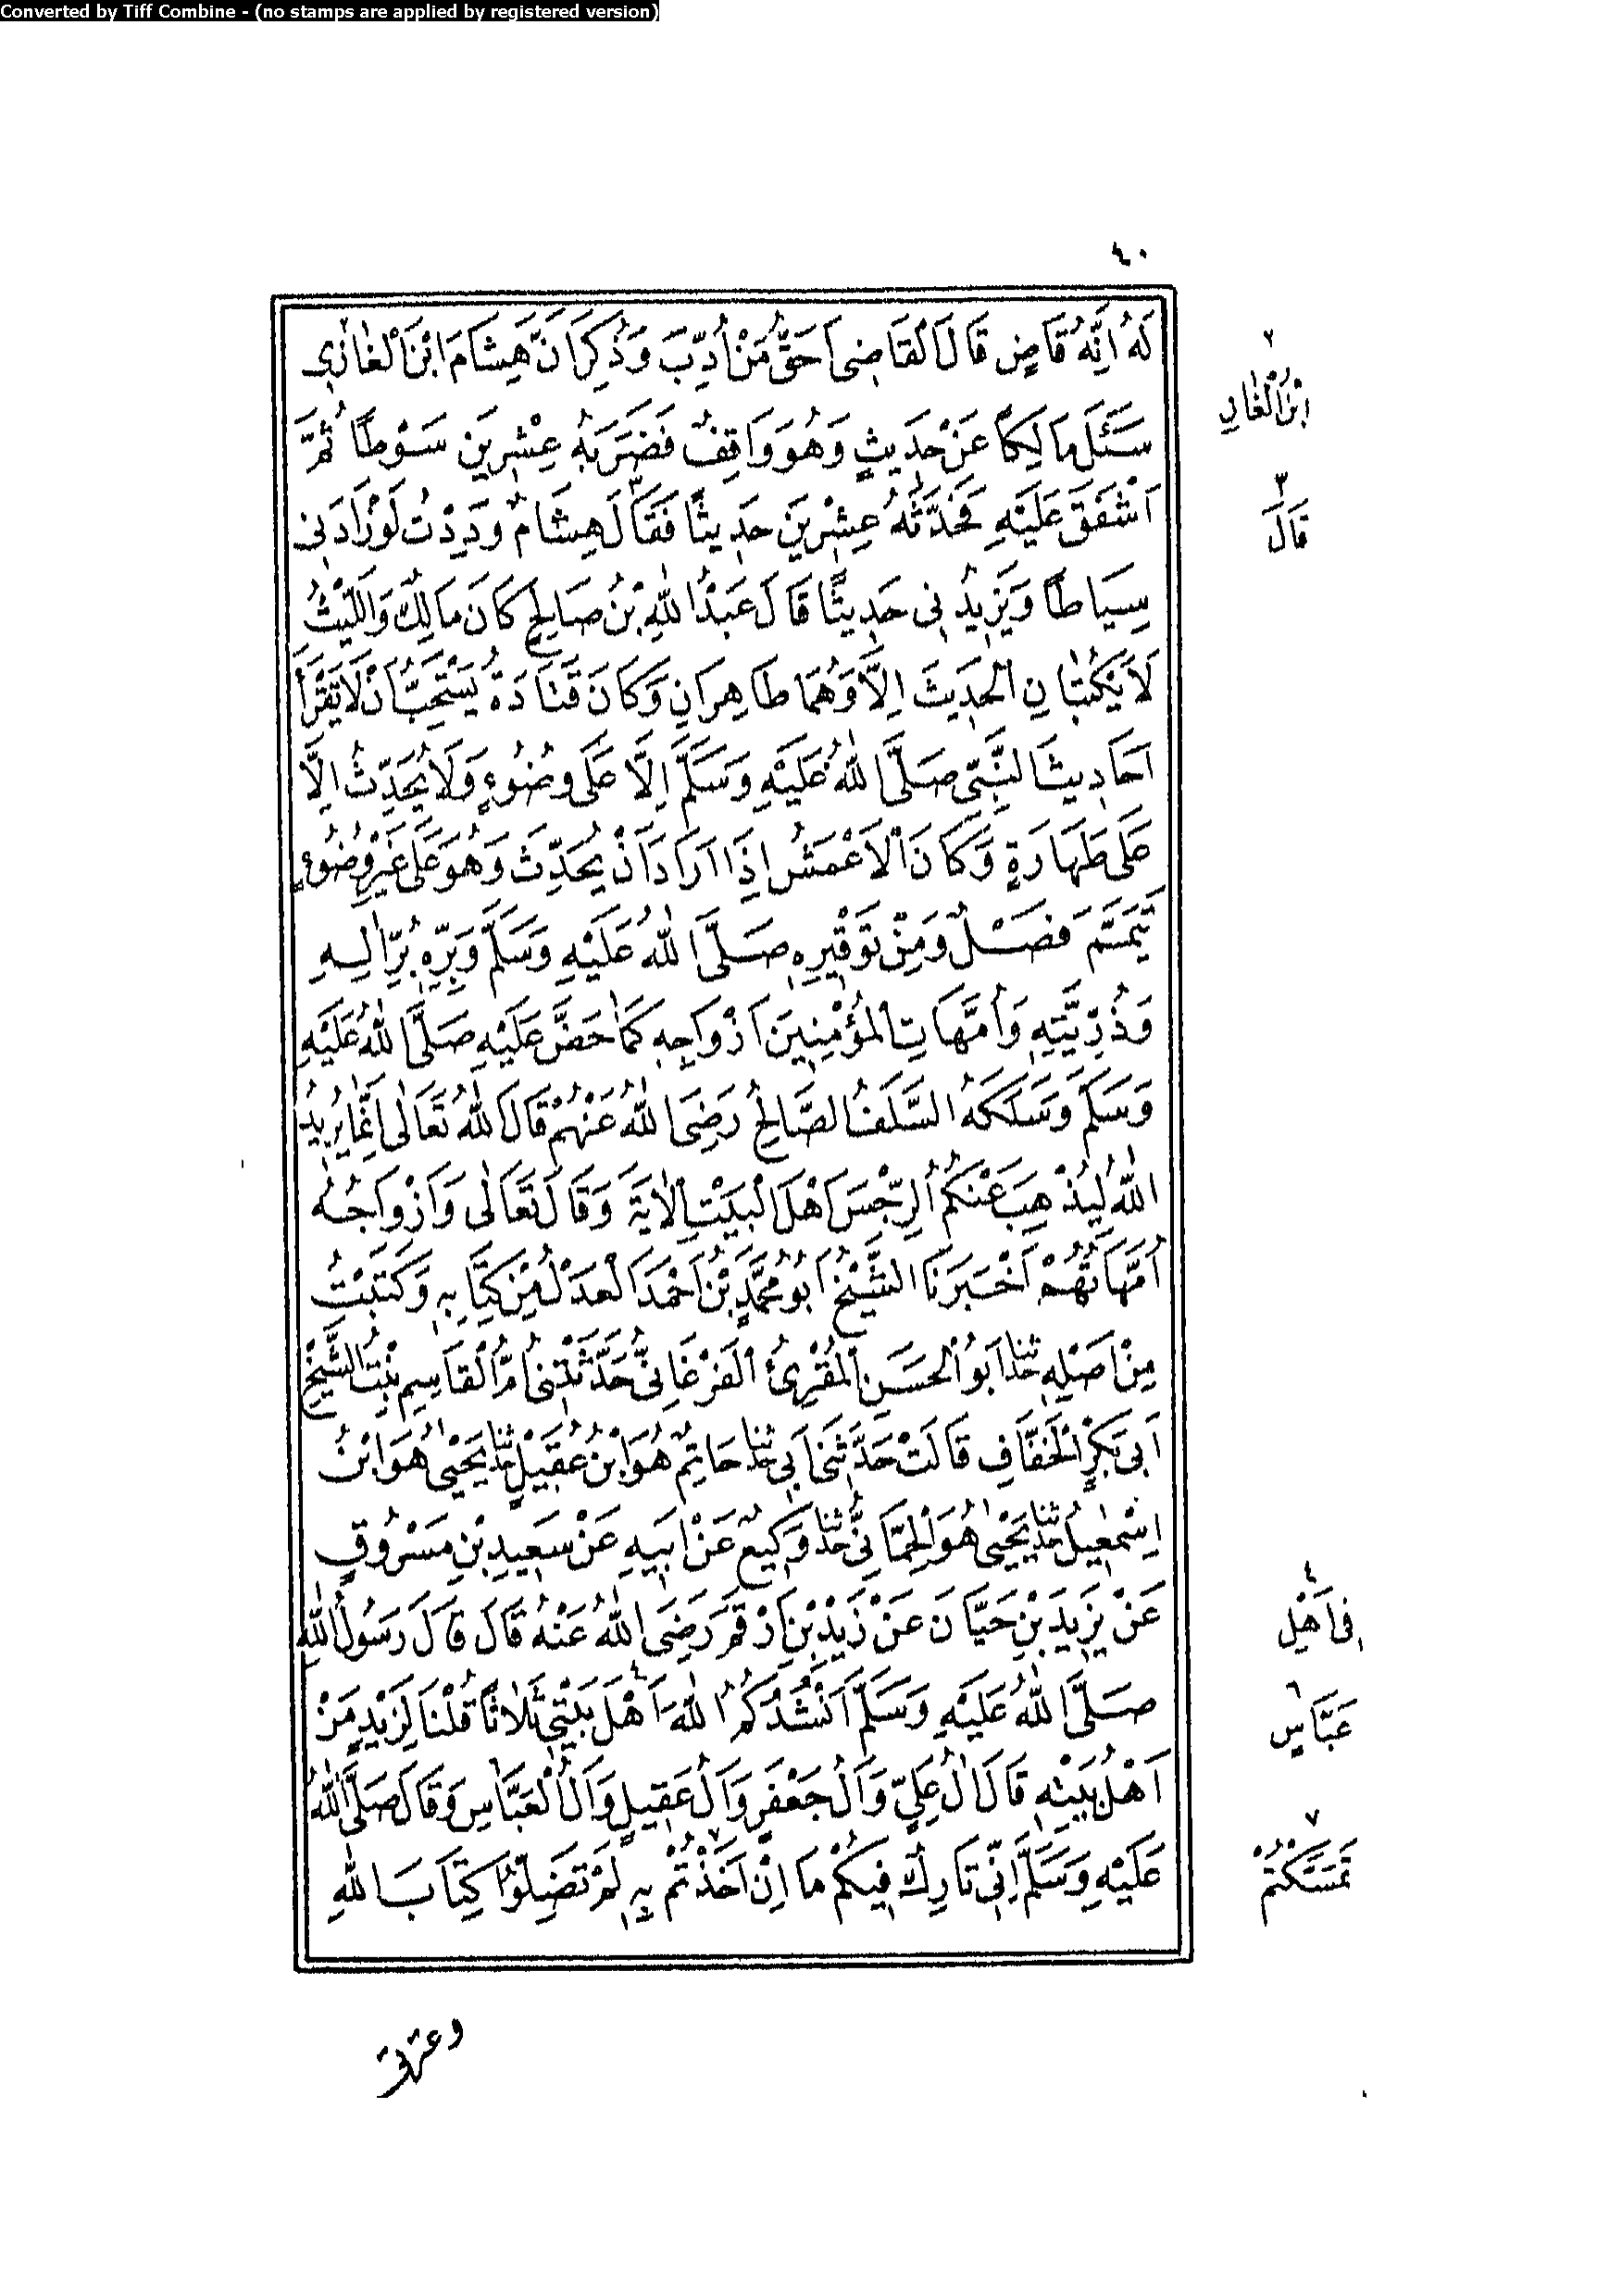 Converted by Tiff Combine - (no stamps are applied by registered version)
٤٠
لَهُ اِنَّهُ قَاضٍ قَالَ اَلْقَاضِى اَحَقُّ مَنْ اُدِّبَ وَذُكِرَ اَنَّ هِشَامَ ابْنَ الْغَازِى
سَئَلَ مَالِكًا عَنْ حَدِيثٍ وَهُوَ وَاقِفٌ فَضَرَبَهُ عِشْرِينَ سَوْطًا ثُمَّ
اَشْفَقَ عَلَيْهِ فَحَدَّثَهُ عِشْرِينَ حَدِيثًا فَقَالَ هِشَامٌ وَدِدْتُ لَوْزَادَنِى
سِيَاطًا وَيَزِيدُنِى حَدِيثًا قَالَ عَبْدُ اللهِ بْنُ صَالِحٍ كَانَ مَالِكٌ وَاللَّيْثُ
لَا يَكْتُبَانِ الْحَدِيثَ اِلَّا وَهُمَا طَاهِرَانِ وَكَانَ قَتَادَةُ يَسْتَحِبُّ اَنْ لَا يَقْرَأَ
اَحَادِيثَ النَّبِىِّ صَلَّى اللهُ عَلَيْهِ وَسَلَّمَ اِلَّا عَلَى وُضُوءٍ وَلَا يُحَدِّثُ اِلَّا
عَلَى طَهَارَةٍ وَكَانَ الْاَعْمَشُ اِذَا اَرَادَ اَنْ يُحَدِّثَ وَهُوَ عَلَى غَيْرِ وُضُوءٍ
تَيَمَّمَ فَصْلٌ وَمِنْ تَوْقِيرِهِ صَلَّى اللهُ عَلَيْهِ وَسَلَّمَ وَبِرِّهِ بِرُّ اٰلِهِ
وَذُرِّيَّتِهِ وَاُمَّهَاتِ الْمُؤْمِنِينَ اَزْوَاجِهِ كَمَا حَضَّ عَلَيْهِ صَلَّى اللهُ عَلَيْهِ
وَسَلَّمَ وَسَلَكَهُ السَّلَفُ الصَّالِحُ رَضِىَ اللهُ عَنْهُمْ قَالَ اللهُ تَعَالٰى اِنَّمَا يُرِيدُ
اللهُ لِيُذْهِبَ عَنْكُمُ الرِّجْسَ اَهْلَ الْبَيْتِ الْاٰيَةَ وَقَالَ تَعَالٰى وَاَزْوَاجُهُ
اُمَّهَاتُهُمْ اَخْبَرَنَا الشَّيْخُ اَبُو مُحَمَّدِ بْنُ اَحْمَدَ الْعَدْلُ مِنْ كِتَابِهِ وَكَتَبْتُ
مِنْ اَصْلِهِ حدثنا اَبُو الْحَسَنِ الْمُقْرِئُ الْفَرْغَانِىُّ حَدَّثَتْنِى اُمُّ الْقَاسِمِ بِنْتُ الشَّيْخِ
اَبِى بَكْرٍ الْخَفَّافِ قَالَتْ حَدَّثَنِى اَبِى حدثنا حَاتِمٌ هُوَ ابْنُ عُقَيْلٍ حدثنا يَحْيٰى هُوَ ابْنُ
اِسْمٰعِيلَ حدثنا يَحْيٰى هُوَ الْحِمَّانِىُّ حدثنا وَكِيعٌ عَنْ اَبِيهِ عَنْ سَعِيدِ بْنِ مَسْرُوقٍ
عَنْ يَزِيدَ بْنِ حَيَّانَ عَنْ زَيْدِ بْنِ اَرْقَمَ رَضِىَ اللهُ عَنْهُ قَالَ قَالَ رَسُولُ اللهِ
صَلَّى اللهُ عَلَيْهِ وَسَلَّمَ اَنْشُدُكُمُ اللهَ اَهْلَ بَيْتِى ثَلَاثًا قُلْنَا لِزَيْدٍ مَنْ
اَهْلُ بَيْتِهِ قَالَ اٰلُ عَلِىٍّ وَاٰلُ جَعْفَرٍ وَاٰلُ عَقِيلٍ وَاٰلُ الْعَبَّاسِ وَقَالَ صَلَّى اللهُ
عَلَيْهِ وَسَلَّمَ اِنِّى تَارِكٌ فِيكُمْ مَا اِنْ اَخَذْتُمْ بِهِ لَمْ تَضِلُّوا كِتَابَ اللهِ
وعترتى
٢
ابْنُ الْغَازِ
٣
قَالَ
٤
فِى اَهْلِ
٦
عَبَّاسٍ
٧
تَمَسَّكْتُمْ